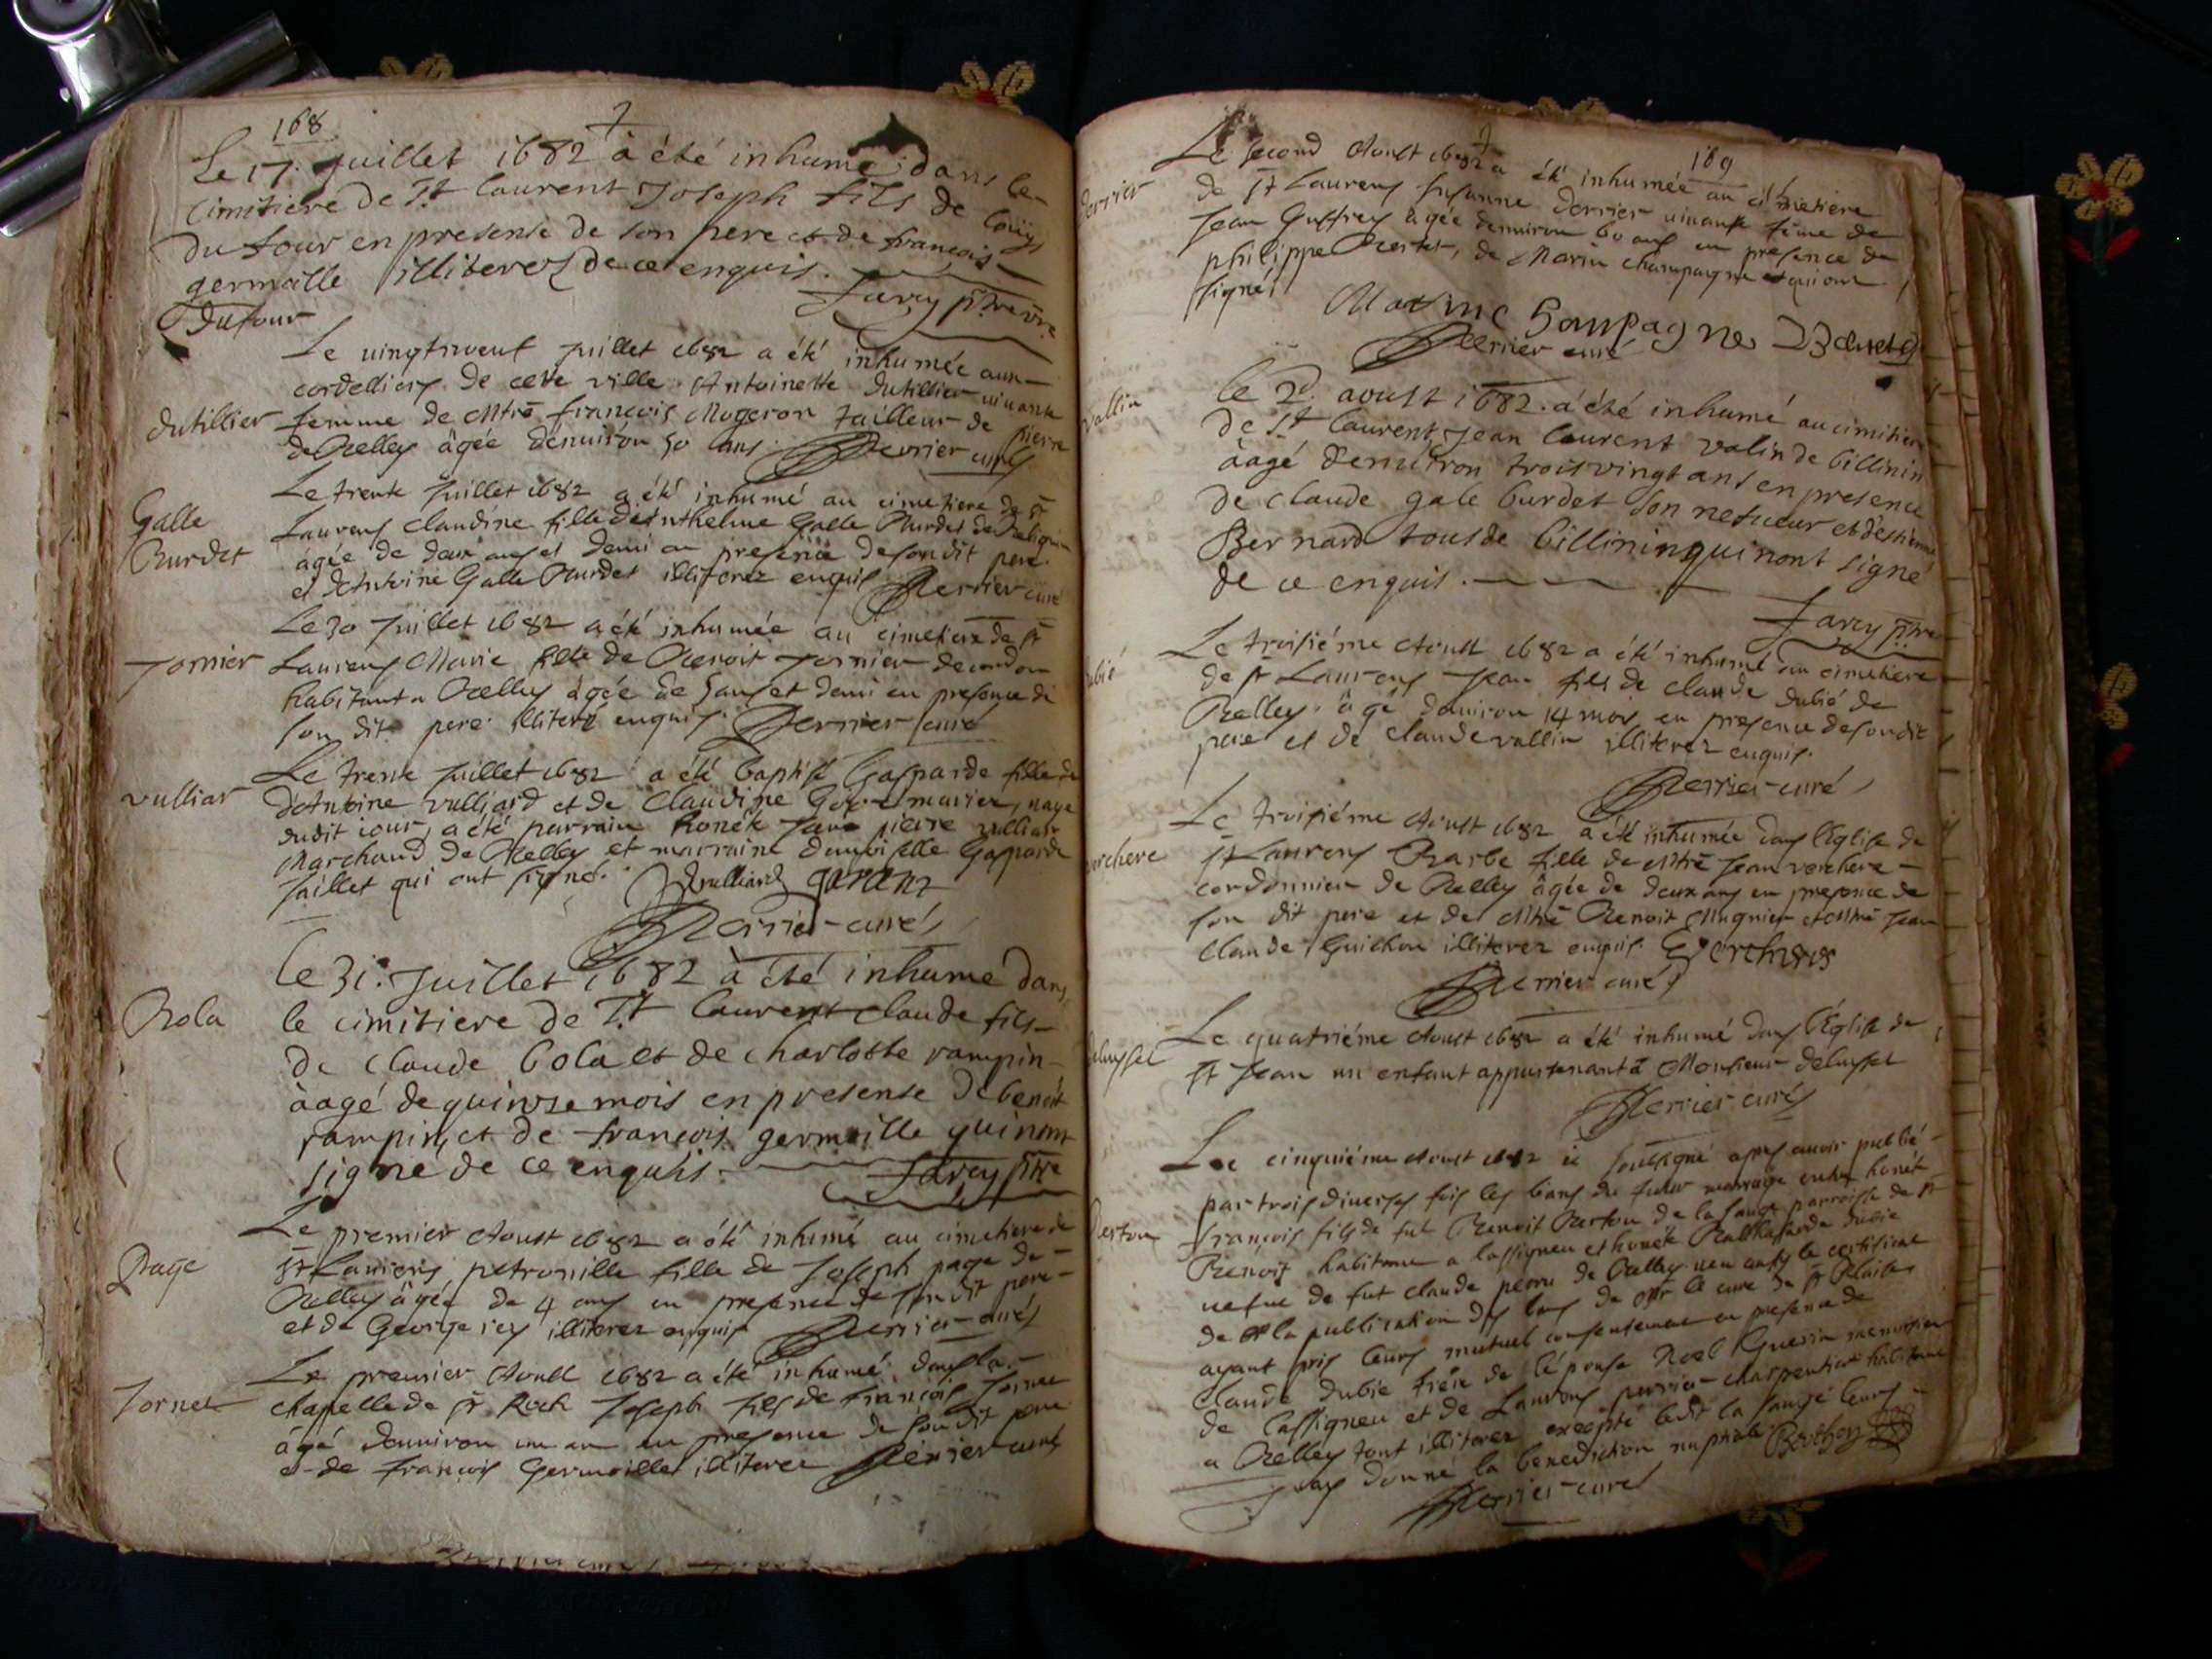 168
Le 17. Juillet 1682 à été inhumé dans le
cimitiere de St laurent Joseph fils de louys
du four en presense de son pere et de françois
germaille illiterez de ce enquis.
dufour
Farcy ptre vre
Le uingtneuf Juillet 1682 a été inhumée aux
cordelliers de cette ville Antoinette dutillier uiuante
dutillier
femme de Mtre françois Mogeron tailleur de pierre
de Belley âgée denuiron 50 ans. Perrier curé
Le trente Juillet 1682 a été inhumé au cimetiere de st
Galle
Burdet
Laurens Claudine fille d'Anthelme Galle Burdet de
âgée de deux ans et demi en presence de son dit pere
et d'Antoine Galle Burdet illiterez enquis Perrier curé
Le 30 Juillet 1682 a été inhumée au cimetiere de st
Jornier
Laurens Marie fille de Benoit Jornier de
habitant a Belley âgée de 5 ans et demi en presence de
son dit pere illiteré enquis. Perrier curé
Le trente Juillet 1682 a été baptisé Gasparde fille de
vulliar
d'Antoine vulliard et de Claudine mariez, naye
dudit iour, a été parrain honête pierre vulliar
Marchand de Belley et marraine demoiselle Gasparde
Jaillet qui ont signé. Vulliard
Perrier curé
Le 31. Juillet 1682 à été inhumé dans
Bola
le cimitiere de St laurent claude fils
de claude bola et de charlotte rampin
àagé de quinze mois en presense de benoit
rampin, et de françois germaille qui nont
signe de ce enquis. Farcy ptre
Le premier Aoust 1682 a été inhumé au cimetiere de
Page
St Laurens petronille fille de Joseph page de
Belley âgée de 4 ans en presence de son dit pere
et de George rey illiterez enquis Perrier curé
Le premier Aoust 1682 a été inhumé dans la
Jornet
chapelle de st Roch Joseph fils de François Jornet
âgé denuiron un an en presence de son dit pere
et de françois Germaillet illiterez Perrier curé
169
Le second Aoust 1682 a été inhumée au cimetiere
Derrier
de St Laurens Susanne Derrier uiuante féme de
Jean Guffrey âgée denuiron 60 ans en presence de
philippe Bertet, de Marin champagne qui ont
signé
Perrier curé
Vallin
le 2d. aoust 1682. a été inhumé au cimitiere
de St laurent Jean laurent valin de billinin
àagé denuiron trois vingt ans en presence
de claude gale burdet son nefueur et destienne
Bernard tous de billinin qui nont signé
de ce enquis.
Farcy ptre
Le troisiéme Aoust 1682 a été inhumé au cimetiere
dubié
de st Laurens Jean fils de claude dubié de
Belley. âgé denuiron 14 mois en presence de son dit
pere et de claude vallin illiterez enquis.
Perrier curé
Le troisiéme Aoust 1682 a été inhumée dans l'Eglise de
verchere
st Laurens Barbe fille de Mtre Jean verchere
cordonnier de Belley âgée de deux ans en presence de
son dit pere et de Mtre Benoit Mugnier et Mtre Jean
Claude Guichon illiterez enquis.
Perrier curé
Le quatriéme Aoust 1682 a été inhumé dans l'Eglise de
deluysel
st Jean un enfant appartenant à Monsieur deluysel
Perrier curé
Le cinquiéme Aoust 1682 ie soussigné apres auoir publié
par trois diuerses fois les bans du futur mariage entre honête
Berton
françois fils de fut Benoit Berton de la sauge parroisse de st
Benoit habitant a lassigneu et honête Balthasarde dubie
uefue de fut claude perru de Belley ueu aussy le certificat
de la publication des bans de Mr le curé de st Blaise
ayant pris leurs mutuel consentement en presence de
claude dubie frére de l'épouse Noel Guerin menuisier
de lassigneu et de Laurens perrier charpentier habitant
a Belley tout illiterez excepté ledit la sauge leurs
iay donné la benediction nuptiale
Perrier curé